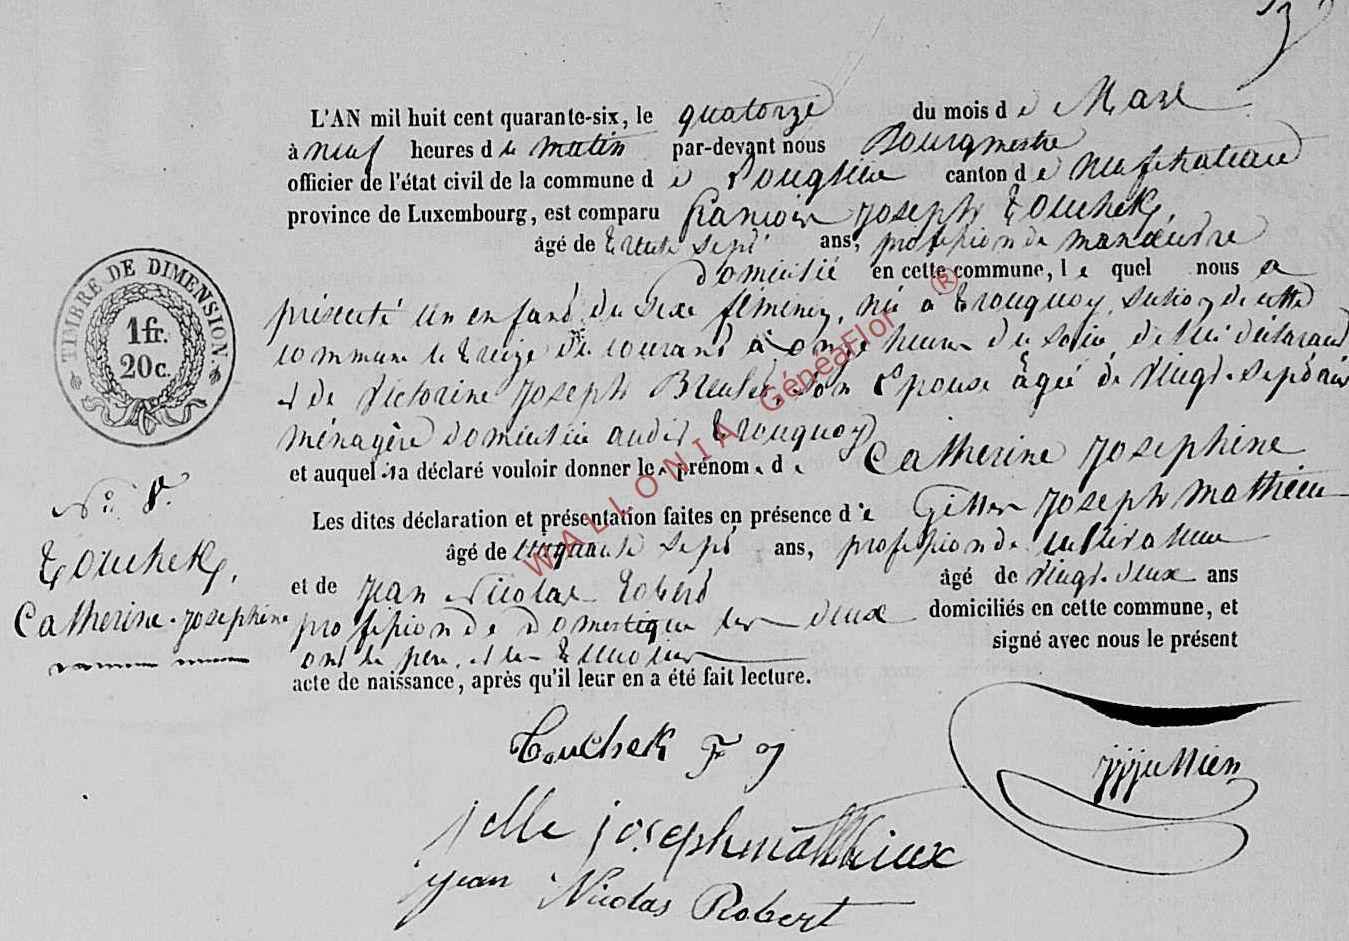 L'AN mil huit cent quarante-six, le quatorze du mois d e Mars
à neuf heures d u matin par-devant nous Bourgmestre
officier de l'état civil de la commune d e canton d e neufchateau
province de Luxembourg, est comparu francois joseph Touchek,
âgé de trente sept ans, profession de manœuvre
domicilié en cette commune, l e quel nous a
présenté un enfant du sexe féminin, né a trouquoy, section de cette
commune le treize du courant à onze heures du soir de lui déclarant
et de Victorine joseph son Epouse âgée de vingt-sept ans
ménagère domiciliée audit trouquoy
et auquel il a déclaré vouloir donner les prénoms d e Catherine josephine
Les dites déclaration et présentation faites en présence d e joseph mathieu
âgé de cinquante sept ans, profession de cultivateur
et de jean Nicolas Robert âgé de vingt-deux ans
profession de domestique deux domiciliés en cette commune, et
ont le père et les temoins signé avec nous le présent
acte de naissance, après qu'il leur en a été fait lecture.
TIMBRE DE DIMENSION.
1 fr.
20 c.
No. 8.
Touchek,
Catherine-josephine
Touchek F j
jjjullien
josephmatthieux
jean Nicolas Robert
WALLONIA GénéaFlor ®